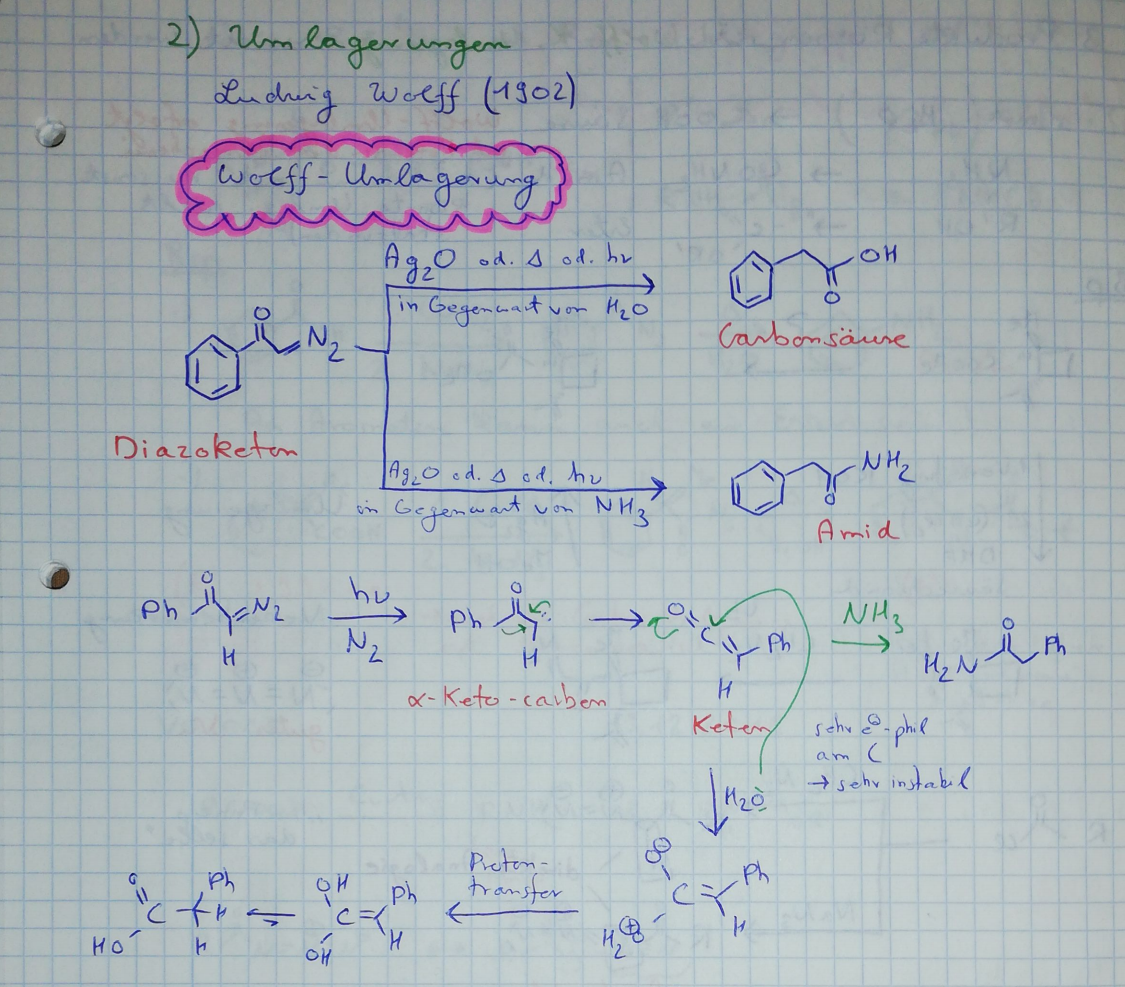 2) Umlagerungen
Ludwig Wolff (1902)
Wolff-Umlagerung
Ag₂O od. Δ od. hν
in Gegenwart von H₂O
OH
O
Carbonsäure
O
N₂
Diazoketon
Ag₂O od. Δ od. hν
in Gegenwart von NH₃
NH₂
O
Amid
Ph
O
N₂
H
hν
N₂
Ph
O
H
α-Keto-carben
O
C
Ph
H
Keten
NH₃
H₂N
O
Ph
sehr e⊖-phil
am C
→ sehr instabil
H₂O
O⊖
C
Ph
H₂O⊕
H
Proton-
transfer
OH
C
Ph
OH
H
O
C
Ph
H
HO
H